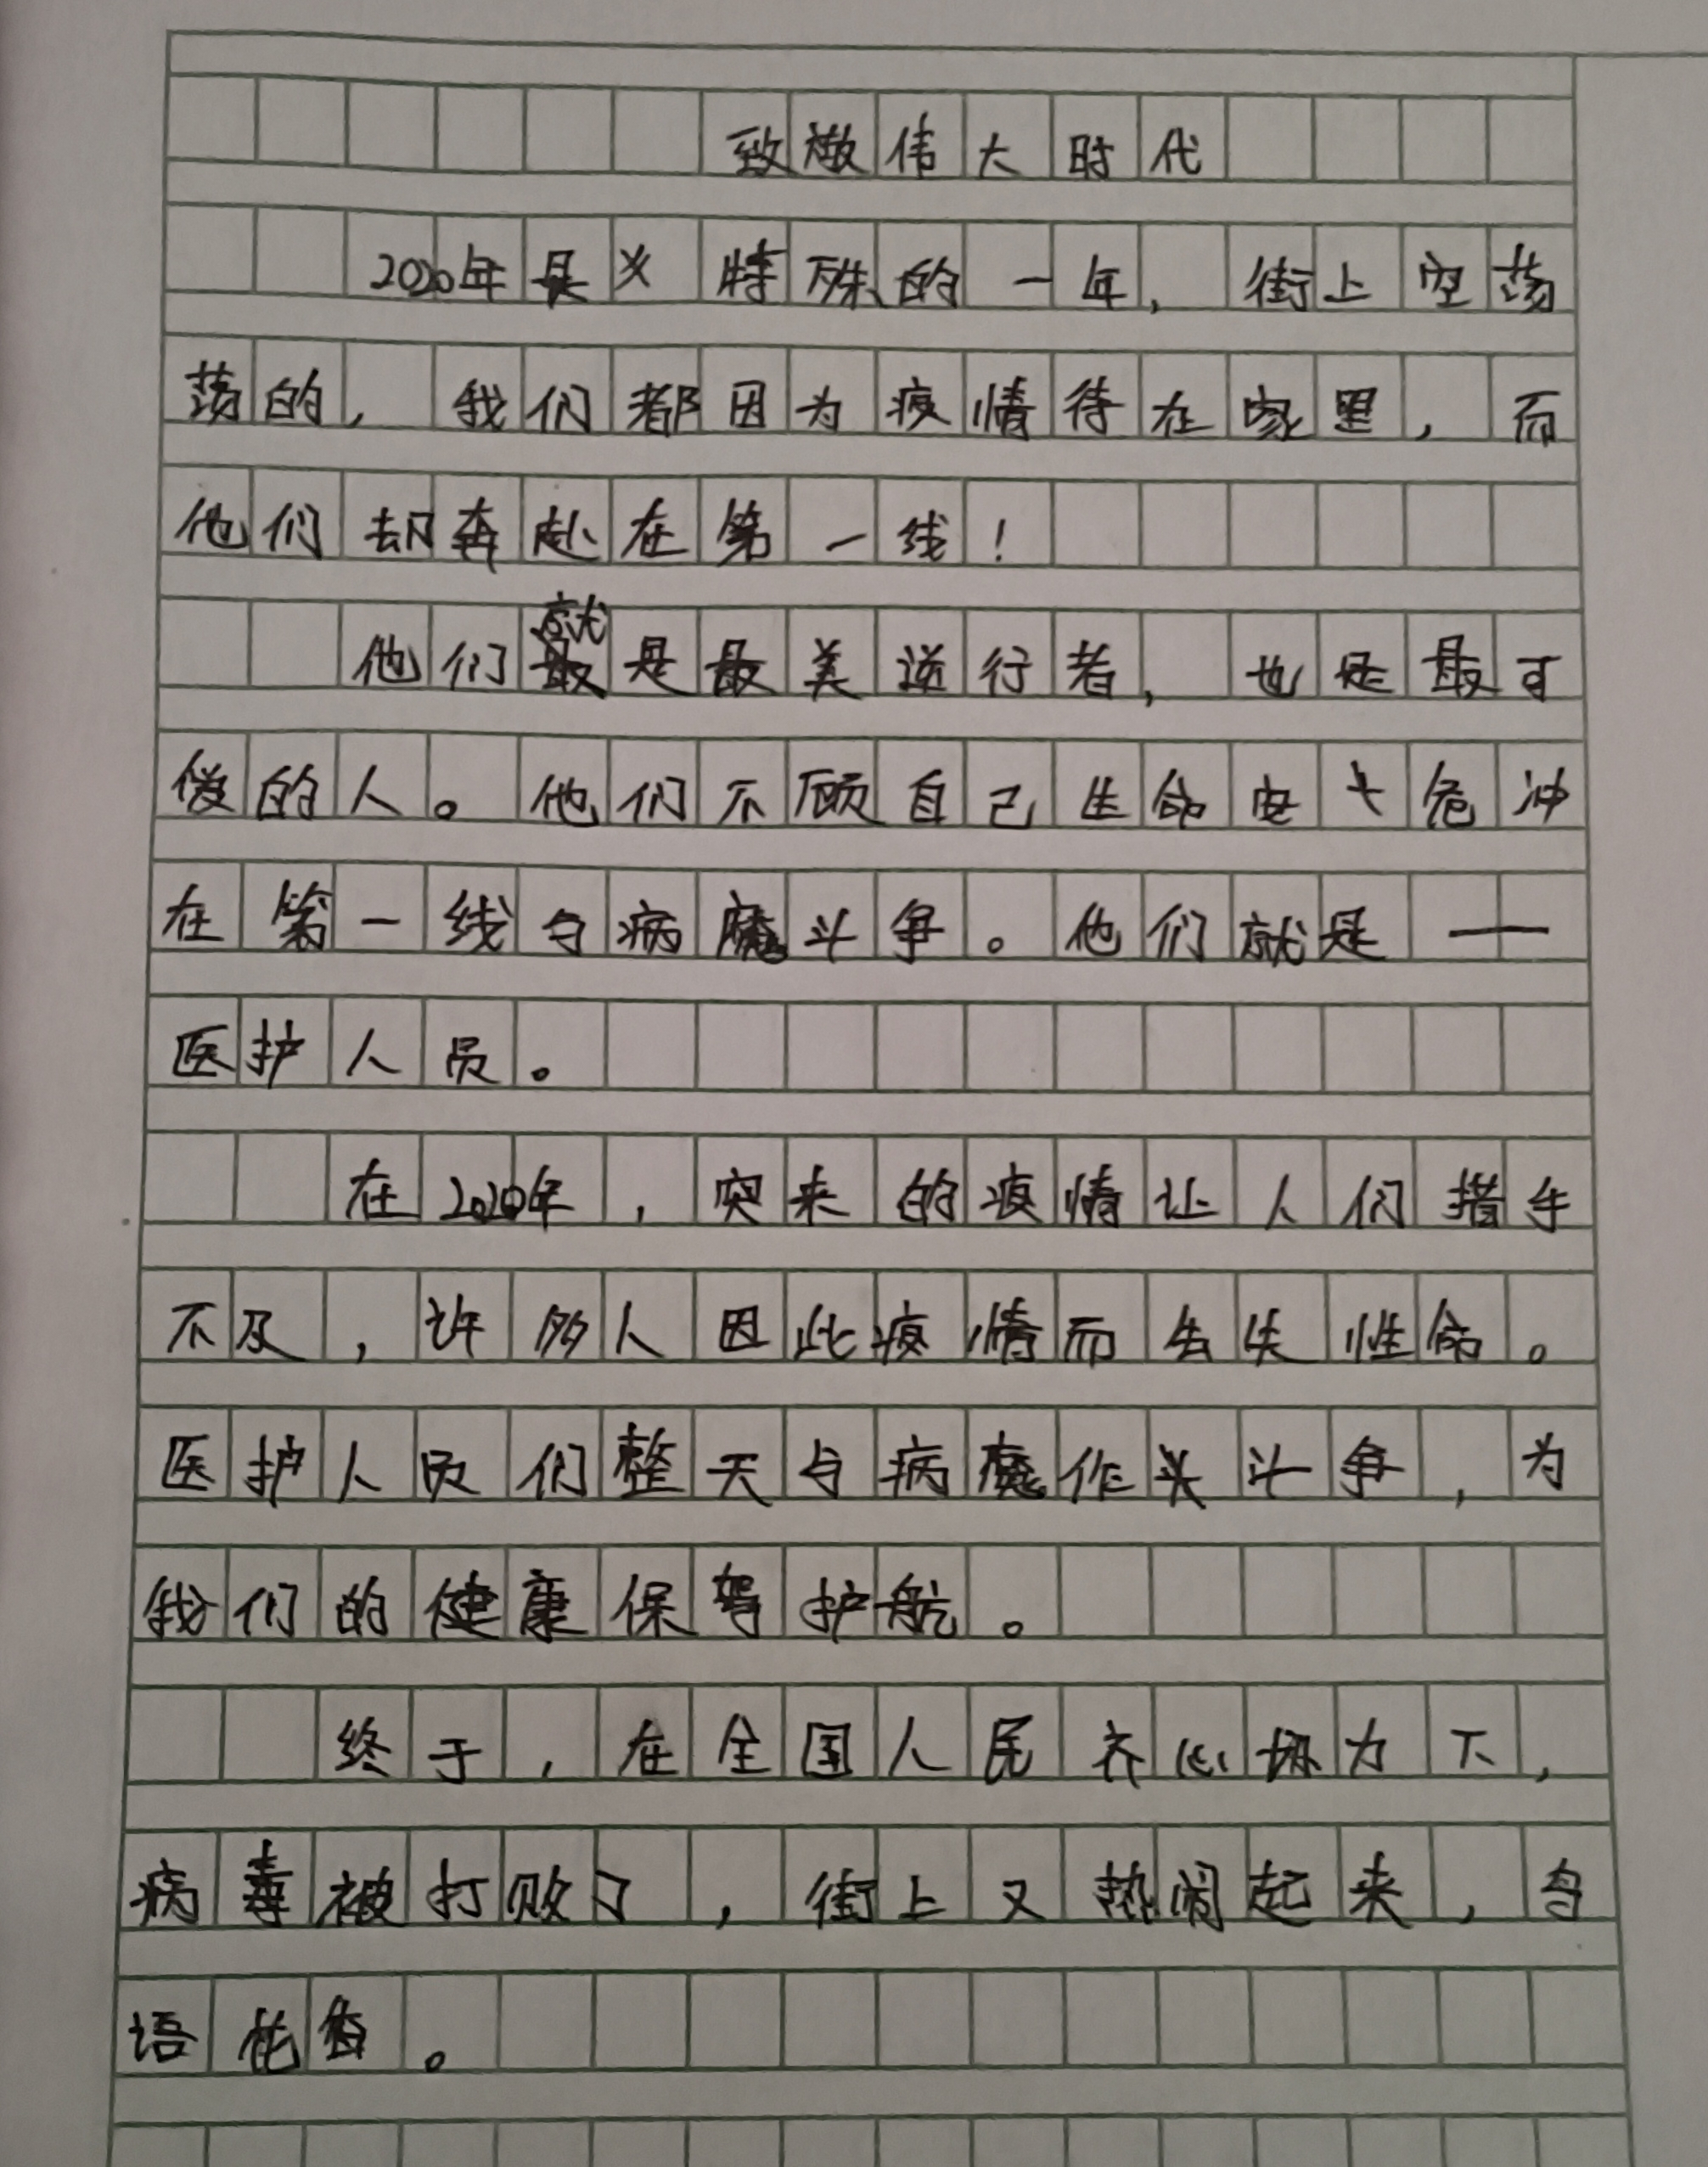 致敬伟大时代
2020年是义特殊的一年，街上空荡
荡的，我们都因为疫情待在家里，而
他们却奔赴在第一线！
他们就是最美逆行者，也是最可
爱的人。他们不顾自己生命安危冲
在第一线与病魔斗争。他们就是——
医护人员。
在2020年，突来的疫情让人们措手
不及，许多人因此疫情而失性命。
医护人员们整天与病魔作斗争，为
我们的健康保驾护航。
终于，在全国人民齐心协力下，
病毒被打败了，街上又热闹起来，鸟
语花香。